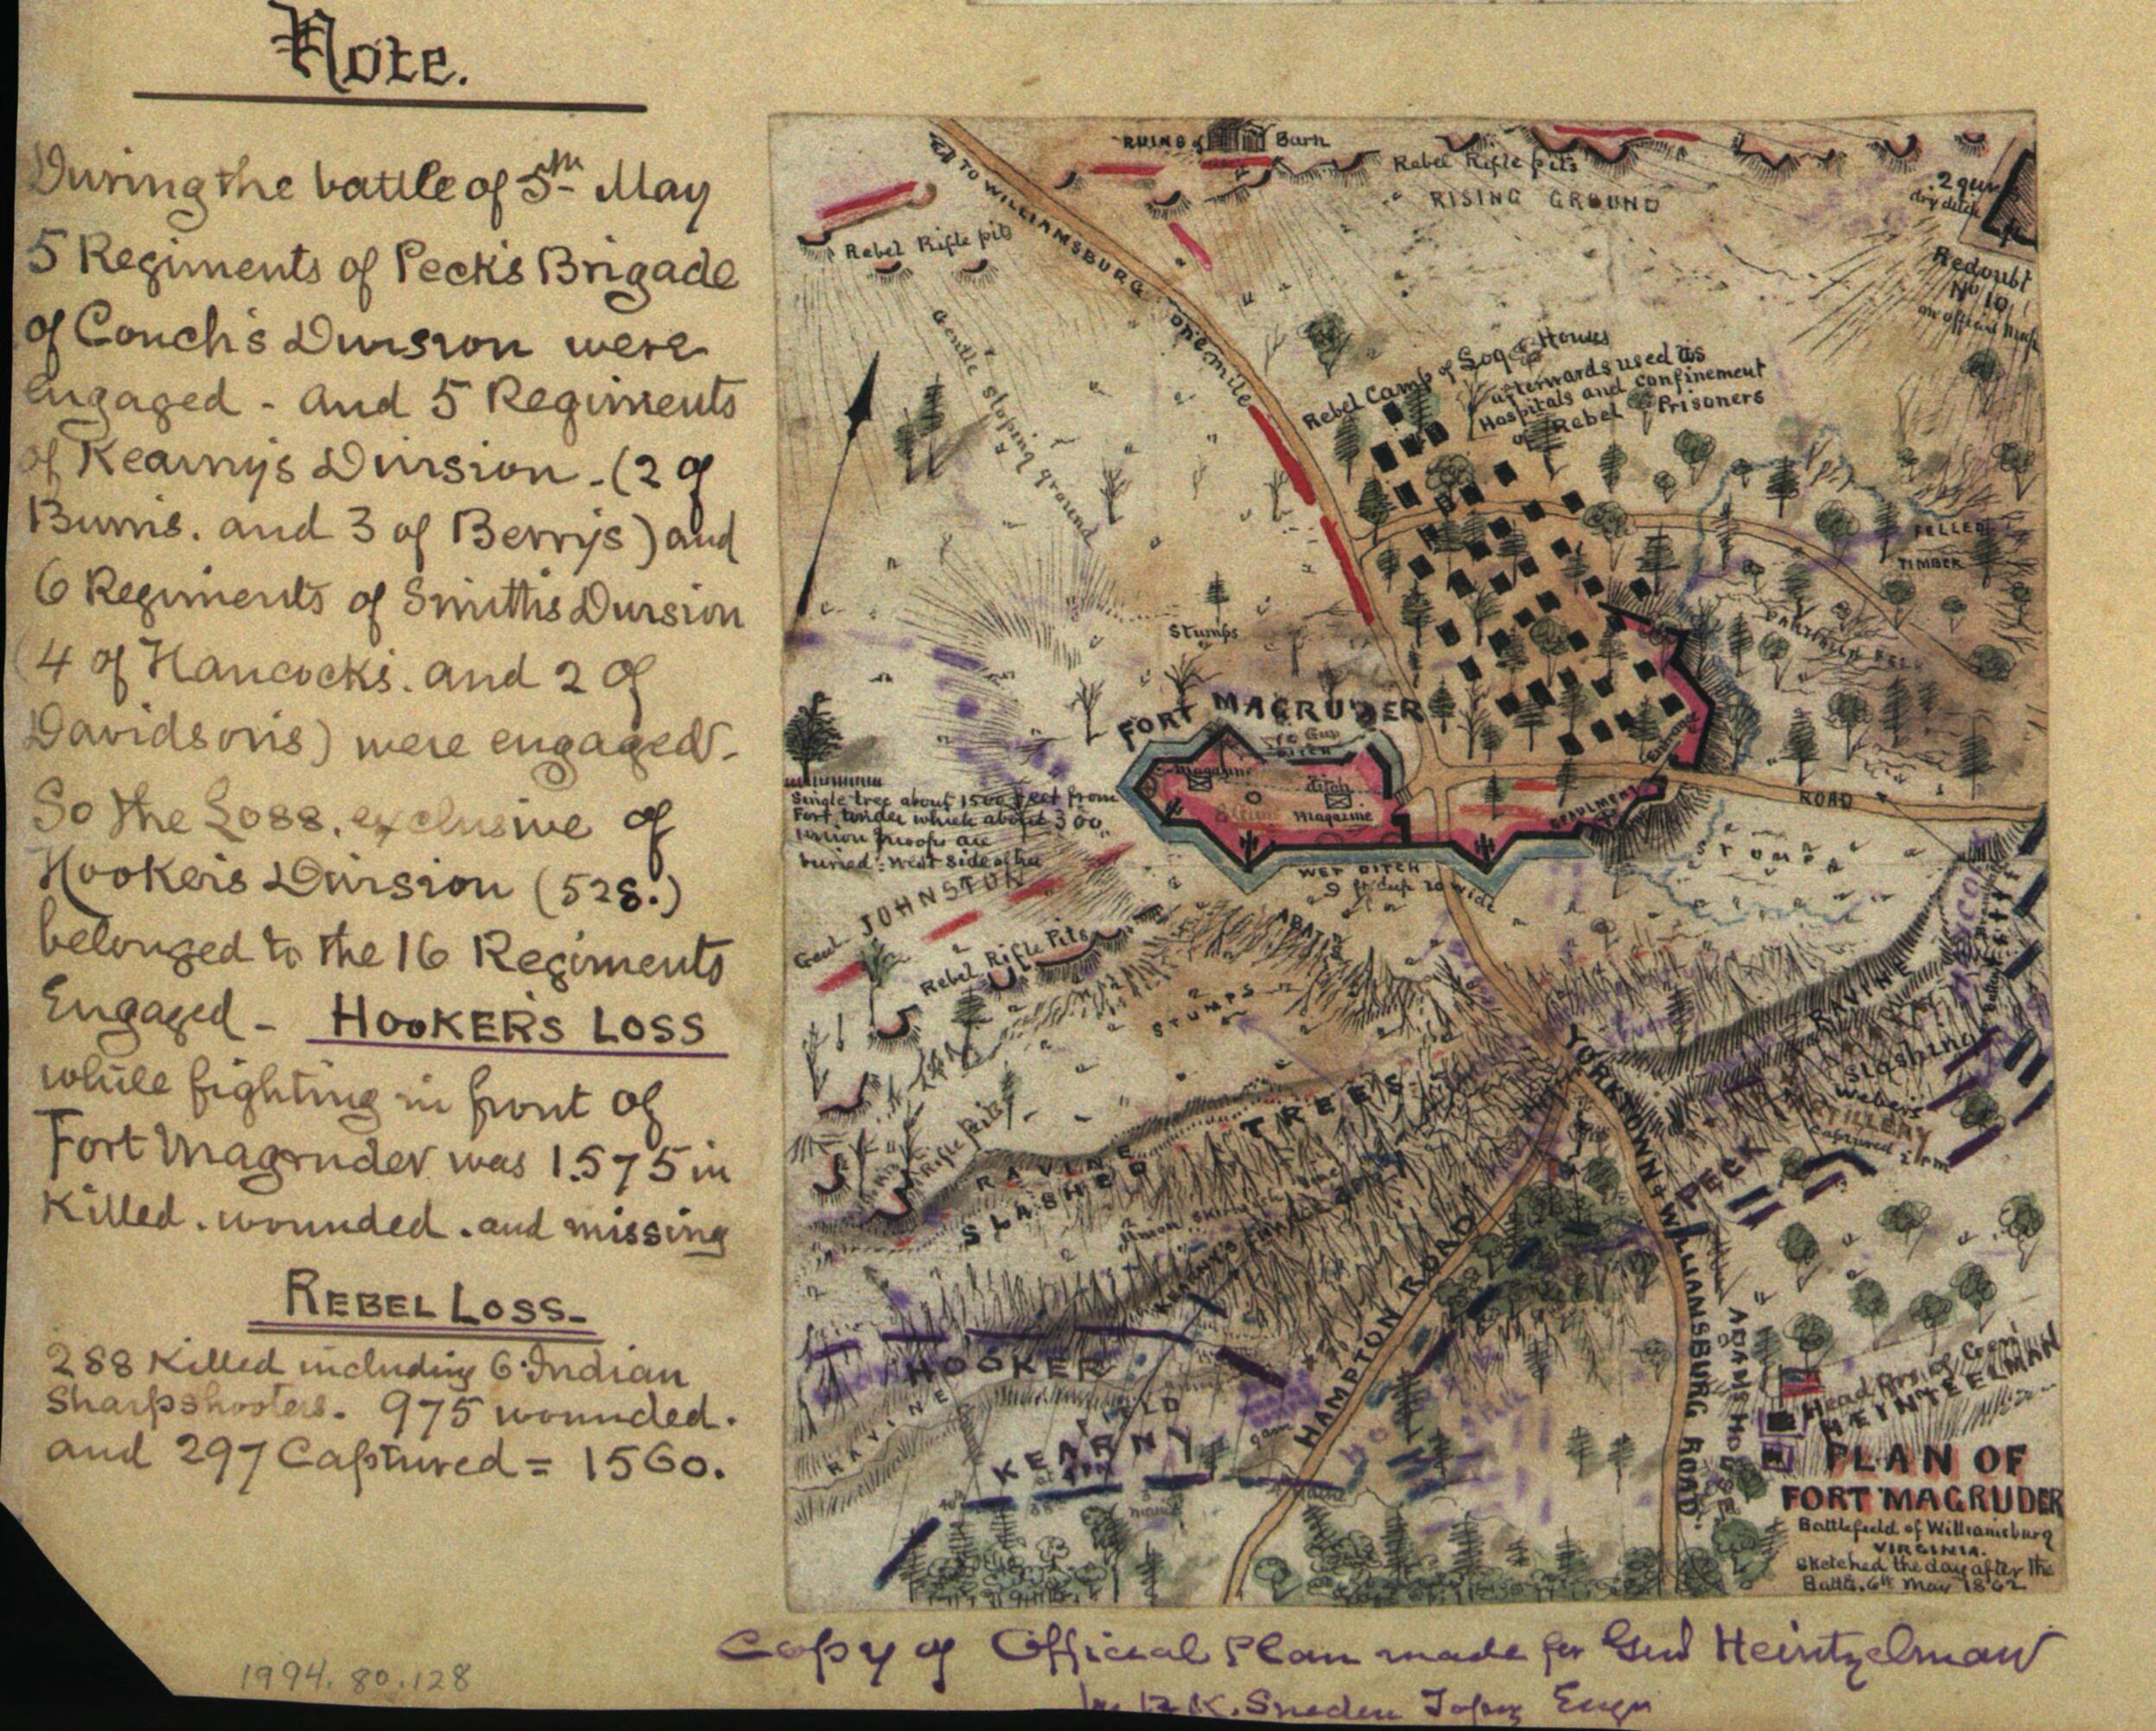 Note.
During the battle of 5th May
5 Regiments of Peck's Brigade
of Couch's Division were
engaged - and 5 Regiments
of Kearny's Division - (2 of
and 3 of Berry's) and
6 Regiments of Smith's Division
4 of Hancock's. and 2 of
Davidson's) were engaged -
So the Loss, exclusive of
Hooker's Division (528.)
belonged to the 16 Regiments
Engaged - HOOKER'S LOSS
while fighting in front of
Fort Magruder was 1.575 in
Killed. wounded. and missing
REBEL LOSS-
288 Killed including 6 Indian
Sharpshooters. 975 wounded.
and 297 Captured = 1560.
1994.80.128
RUINS of Barn
TO WILLIAMSBURG
one mile
Rebel Rifle pits
RISING GROUND
2 gun
dry ditch
Redoubt
No 10
on official map
Rebel Rifle pits
Gentle sloping ground
Rebel Camp of Log Houses
afterwards used as
Hospitals and confinement
of Rebel Prisoners
FELLED
TIMBER
Stumps
FORT MAGRUDER
DITCH
Magazine
ditch
Magazine
ROAD
WET DITCH
9 ft deep 20 wide
Single tree about 1500 feet from
Fort, under which about 300
Union troops are
buried. West side of
Genl JOHNSTON
Rebel Rifle Pits
ABATIS
STUMPS
Stumps
RAVINE
Slashing
Weber's
ARTILLERY
Captured 2 pm
PECK
RAVINE
SLASHED TREES
Rifle pits
Union Skirmish line
YORKTOWN & WILLIAMSBURG ROAD.
HAMPTON ROAD
HOOKER
RAVINE
FIELD
KEARNY
ADAMS HOUSE
Head Qrs of Genl
HEINTZELMAN
PLAN OF
FORT MAGRUDER
Battlefield of Williamsburg
VIRGINIA.
Sketched the day after the
Battle. 6th May 1862
Copy of Official Plan made for Genl Heintzelman
by R K. Sneden Topog Engr